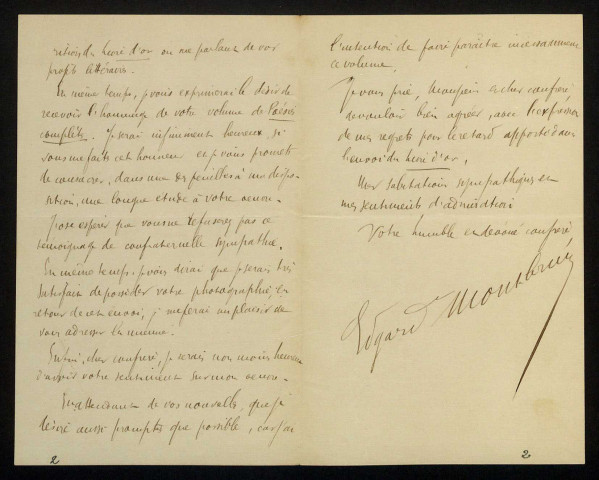 ration du livre d'or en me parlant de vos
projets littéraires.
En même temps, je vous exprimerai le désir de
recevoir l'hommage de votre volume de Poésies
complètes. Je serai infiniment heureux, si
vous me faites cet honneur et je vous promets
de consacrer, dans une des feuilles à ma dispo-
sition, une longue étude à votre œuvre.
J'ose espérer que vous ne refuserez pas ce
témoignage de confraternelle sympathie.
En même temps, je vous dirai que je serais très
satisfait de posséder votre photographie, en
retour de cet envoi, je me ferai un plaisir de
vous adresser la mienne.
Enfin, cher confrère, je serais non moins heureux
d'avoir votre sentiment sur mon œuvre.
En attendant de vos nouvelles, que je
désire aussi promptes que possible, car j'ai
2
l'intention de faire paraître incessamment
ce volume,
Je vous prie, Monsieur et cher confrère
de vouloir bien agréer, avec l'expression
de mes regrets pour le retard apporté dans
l'envoi du livre d'or,
Mes salutations sympathiques et
mes sentiments d'admiration
Votre humble et dévoué confrère
Edgard
2